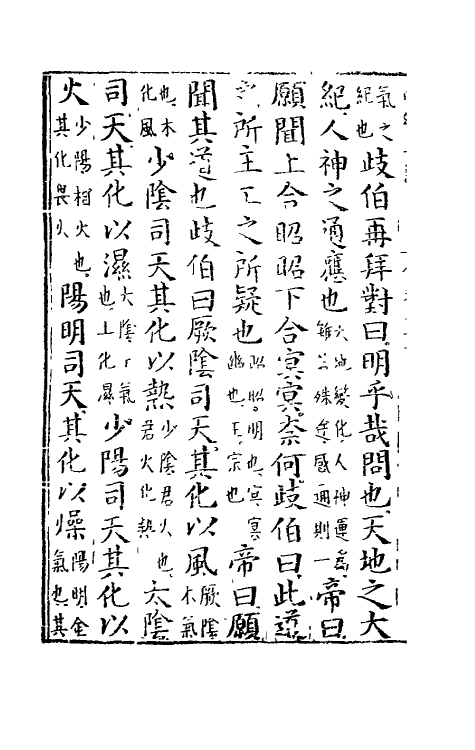 氣之紀也岐伯再拜對曰明乎哉問也天地之大
紀人神之通應也天地變化人神運爲雖三殊矣感通則一帝曰
願聞上合昭昭下合冥冥奈何岐伯曰此道
之所主工之所疑也昭昭明也冥冥幽也工宗也帝曰願
聞其道也岐伯曰厥陰司天其化以風厥陰木氣
也木化風少陰司天其化以熱少陰君火也君火化熱太陰
司天其化以濕太陰土氣也土化濕少陽司天其化以
火少陽相火也其化畏火陽明司天其化以燥陽明金氣也其